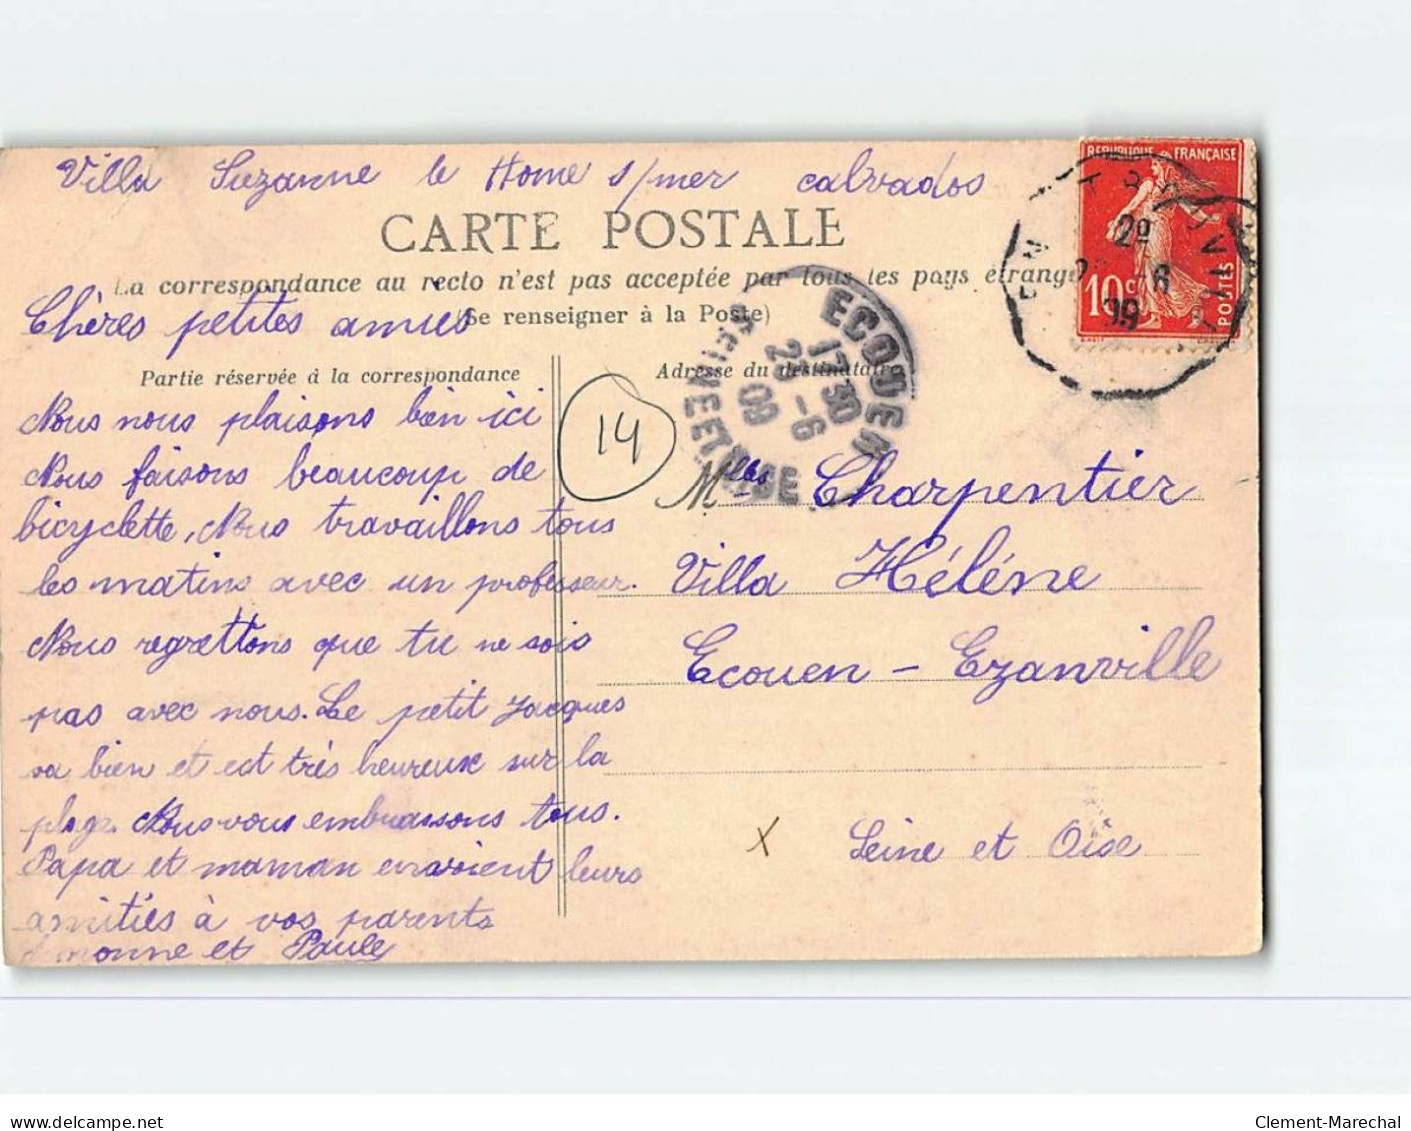 Villa Suzanne le Home s/mer calvados
REPUBLIQUE FRANÇAISE
10 c.
POSTES
CARTE POSTALE
La correspondance au recto n'est pas acceptée par tous les pays étrange
(Se renseigner à la Poste)
Chères petites amies
Partie réservée à la correspondance
Nous nous plaisons bien ici
Nous faisons beaucoup de
bicyclette, Nous travaillons tous
les matins avec un professeur.
Nous regrettons que tu ne sois
pas avec nous. Le petit Jacques
va bien et est très heureux sur la
plage. Nous vous embrassons tous.
Papa et maman envoient leurs
amitiés à vos parents
et Paule
14
ECOUEN
17 30
23 -6
09
SEINE ET OISE
Adresse du destinataire
Mlles Charpentier
Villa Hélène
Ecouen - Ezanville
x Seine et Oise
delcampe.net
Clement-Marechal